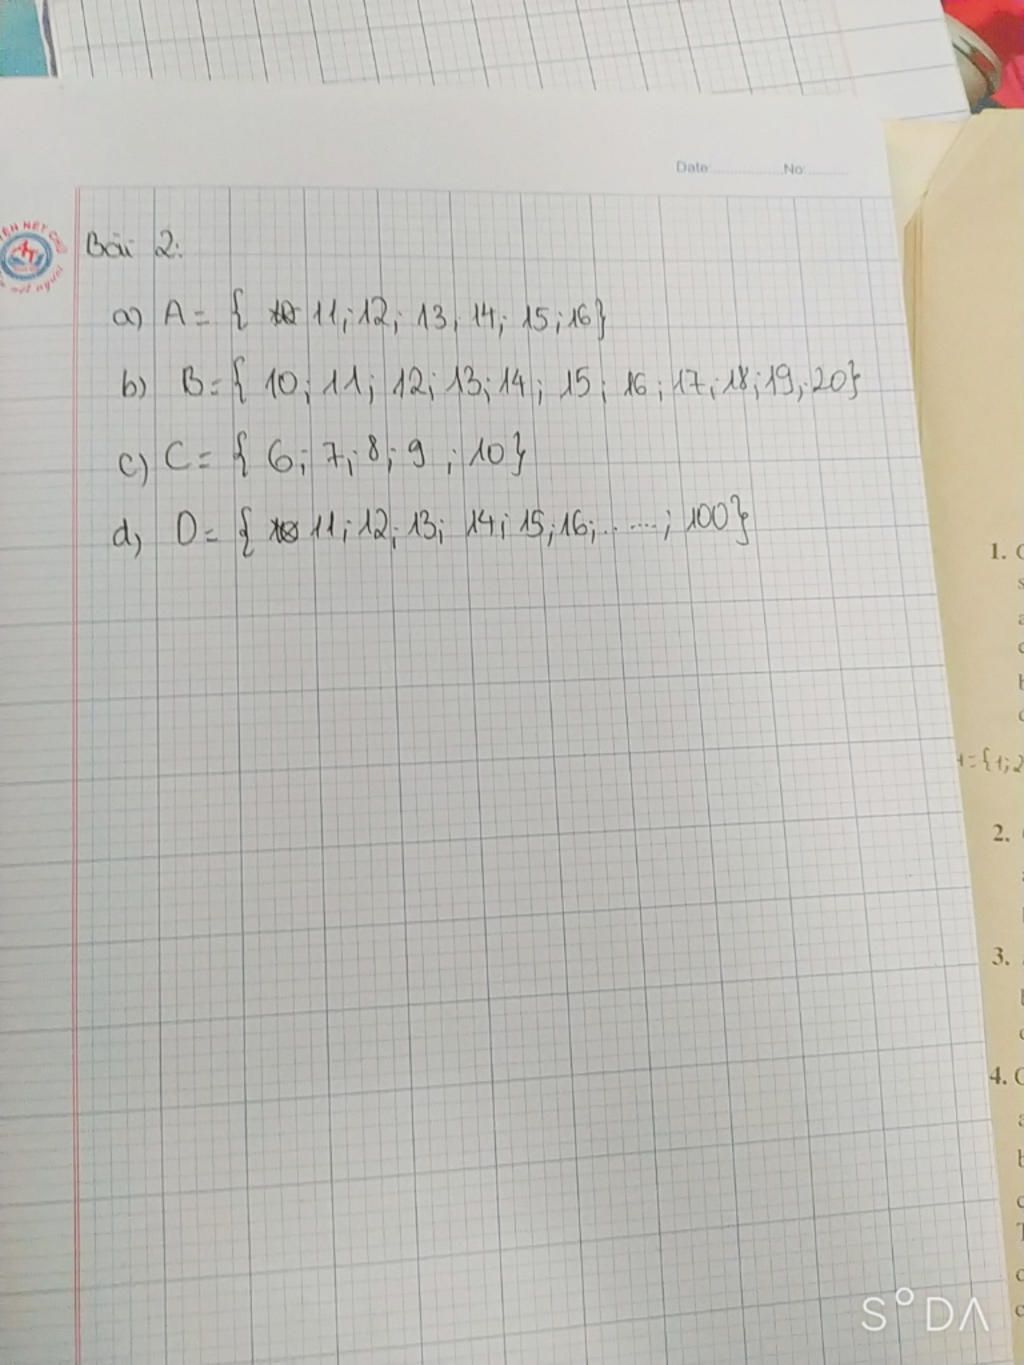 Date: No:
Bài 2:
a) A = { 11; 12; 13; 14; 15; 16}
b) B = { 10; 11; 12; 13; 14; 15; 16; 17; 18; 19; 20}
c) C = { 6; 7; 8; 9; 10}
d) D = { 11; 12; 13; 14; 15; 16; ......; 100}
1.
={1; 2
2.
3.
4.
S°DA